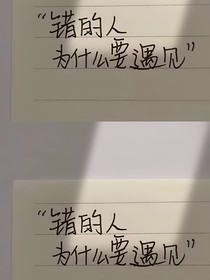 “错的人
为什么要遇见”
“错的人
为什么要遇见”